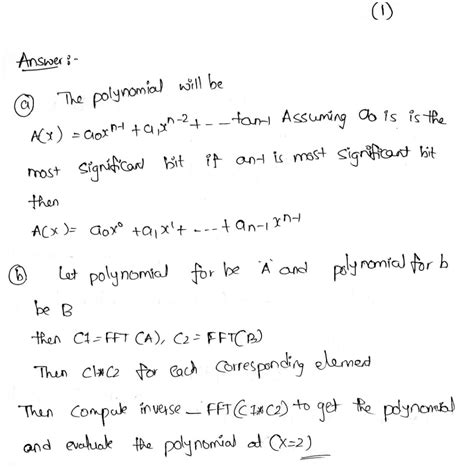 (1)
Answer :-
(a) The polynomial will be
A(x) = a0x^n-1 + a1x^n-2 + - - - + an-1 Assuming a0 is is the
most significant bit if an-1 is most significant bit
then
A(x) = a0x^0 + a1x^1 + - - - - + an-1 x^n-1
(b) Let polynomial for be A and polynomial for b
be B
then C1 = FFT (A), C2 = FFT(B)
Then C1*C2 for each corresponding element
Then compute inverse_FFT(C1*C2) to get the polynomial
and evaluate the polynomial at (x=2)